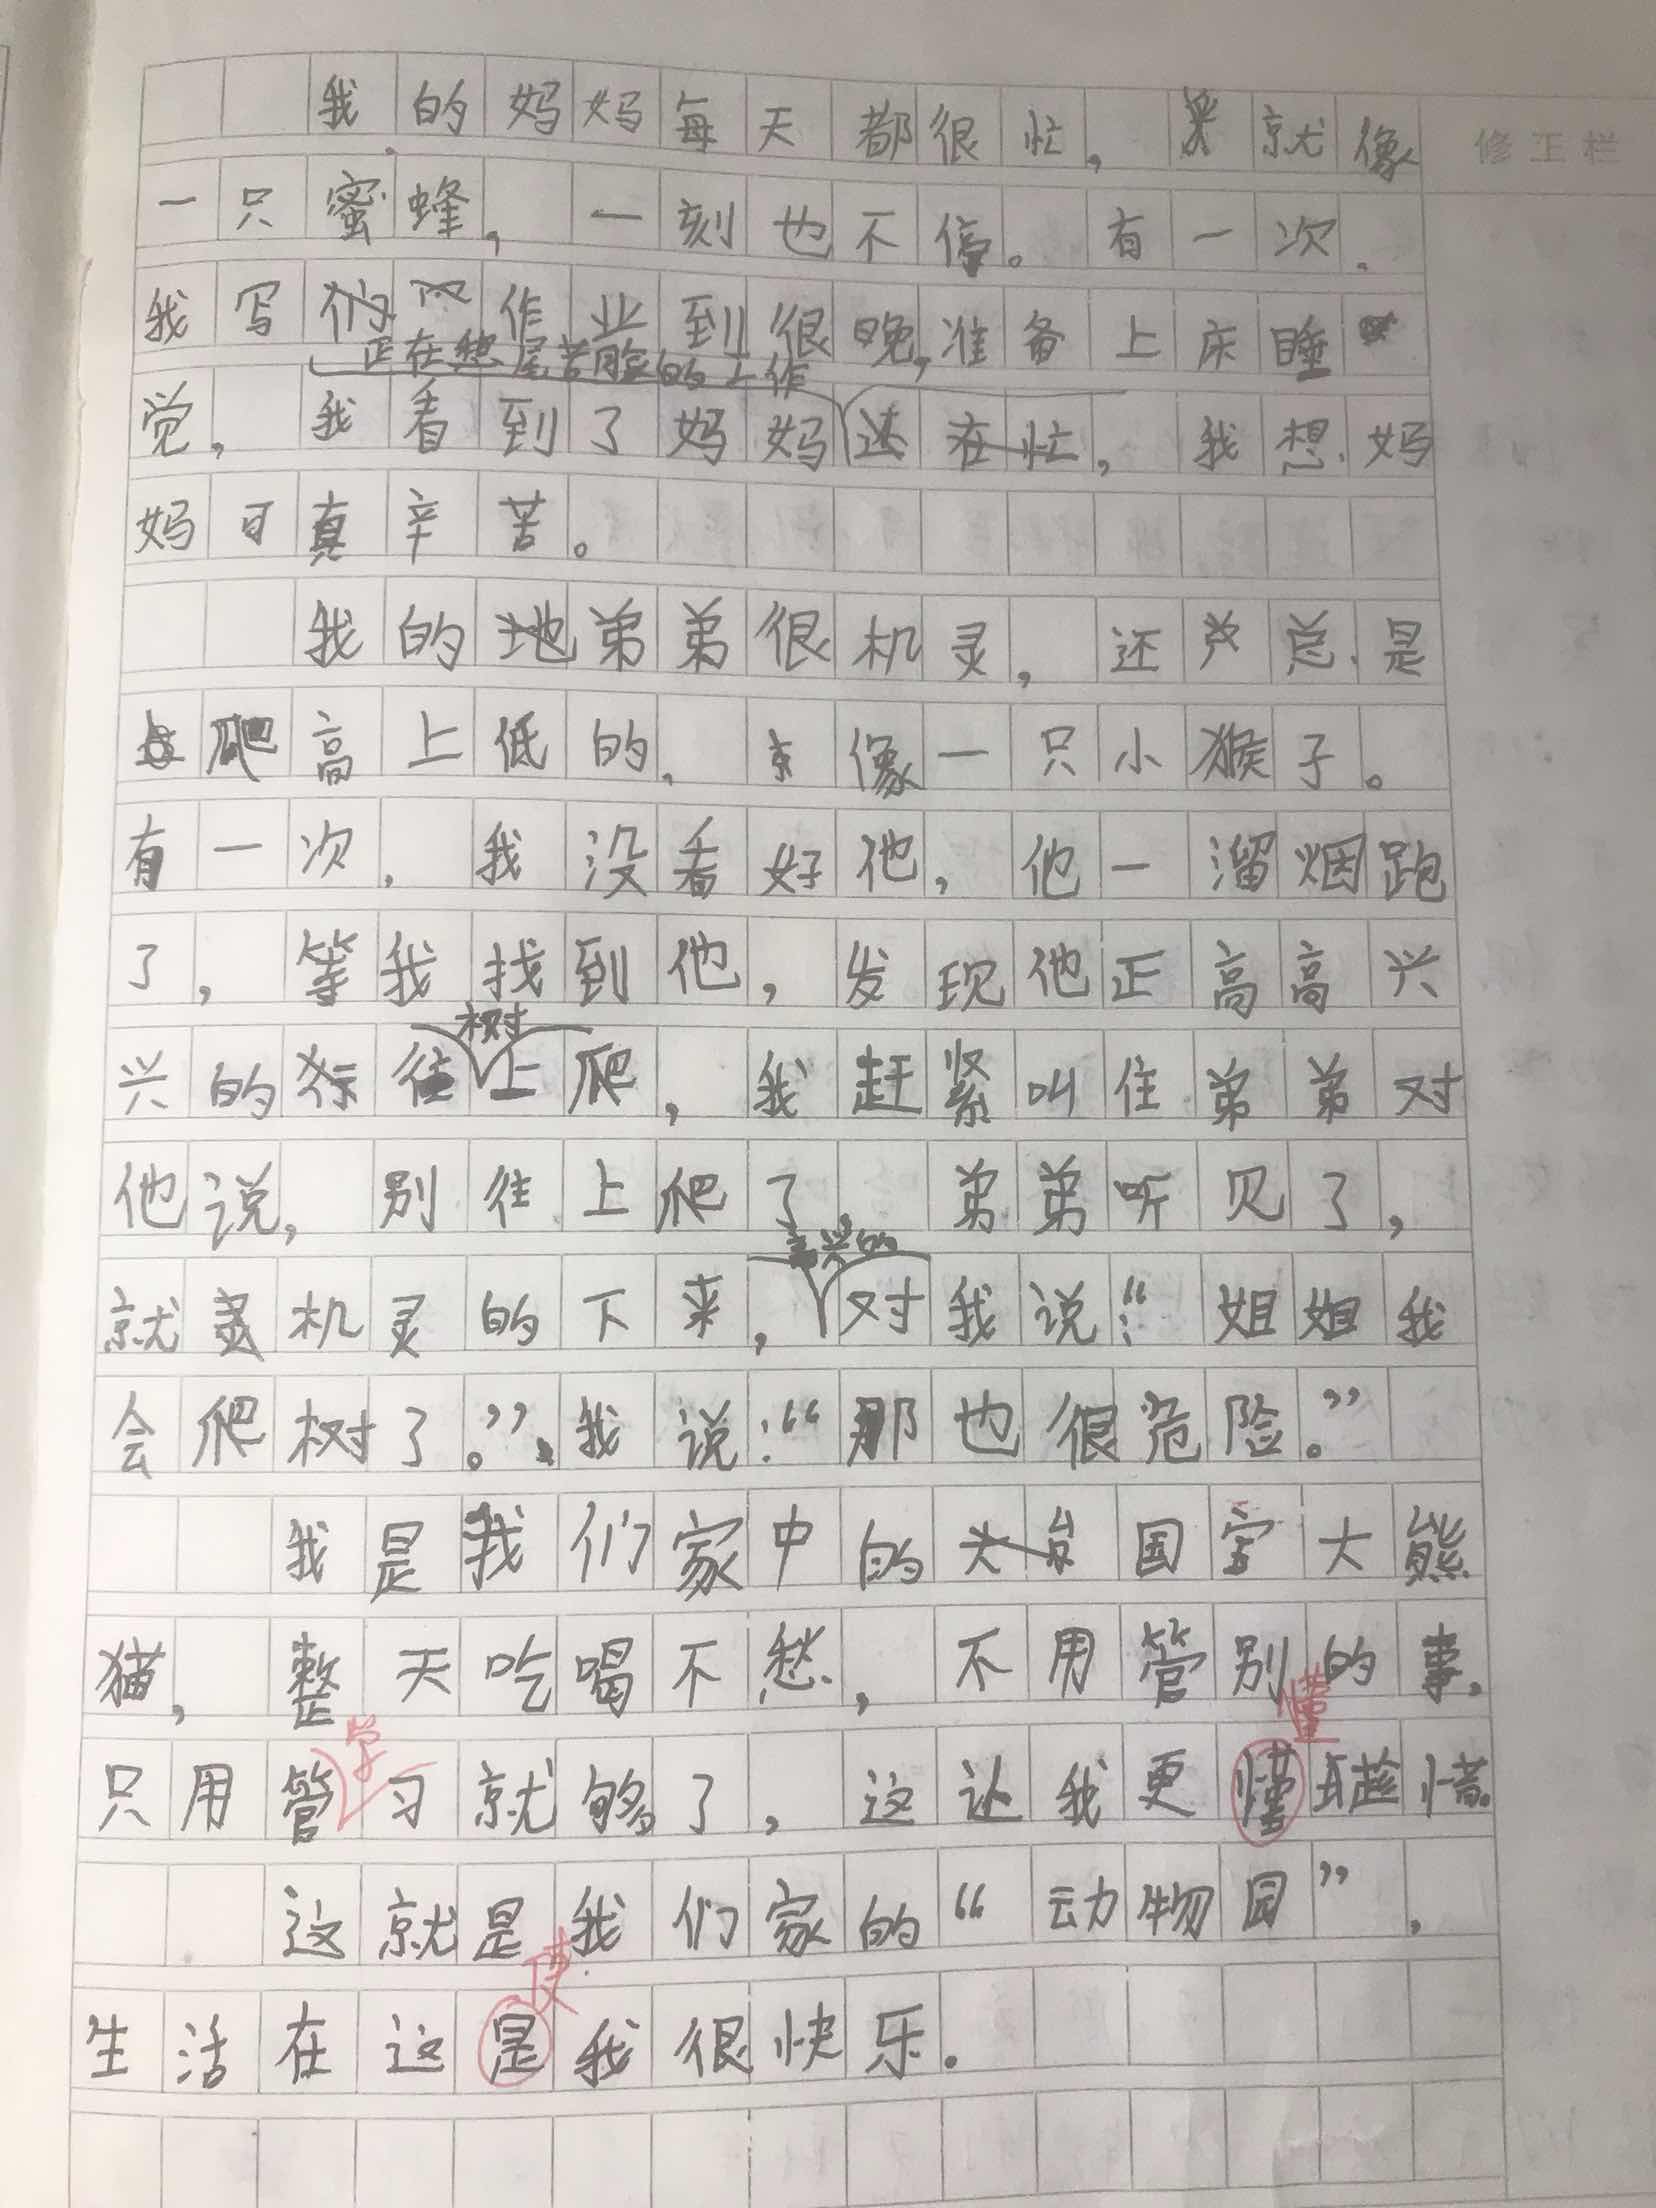 我的妈妈每天都很忙，就像
修正栏
一只蜜蜂，一刻也不停。有一次，
我写作业到很晚，准备上床睡
正在愁眉苦脸的工作
觉，我看到了妈妈还在忙，我想妈
妈可真辛苦。
我的弟弟很机灵，还总是
爬高上低的，像一只小猴子。
有一次，我没看好他，他一溜烟跑
了，等我找到他，发现他正高高兴
树
兴的往上爬，我赶紧叫住弟弟对
他说，别往上爬了，弟弟听见了，
高兴的
就机灵的下来，对我说：“姐姐我
会爬树了。”我说：“那也很危险。”
我是我们家中的国宝大熊
猫，整天吃喝不愁，不用管别的事，
学 懂
只用管习就够了，这让我更懂珍惜。
这就是我们家的“动物园”，
生活在这是我很快乐。